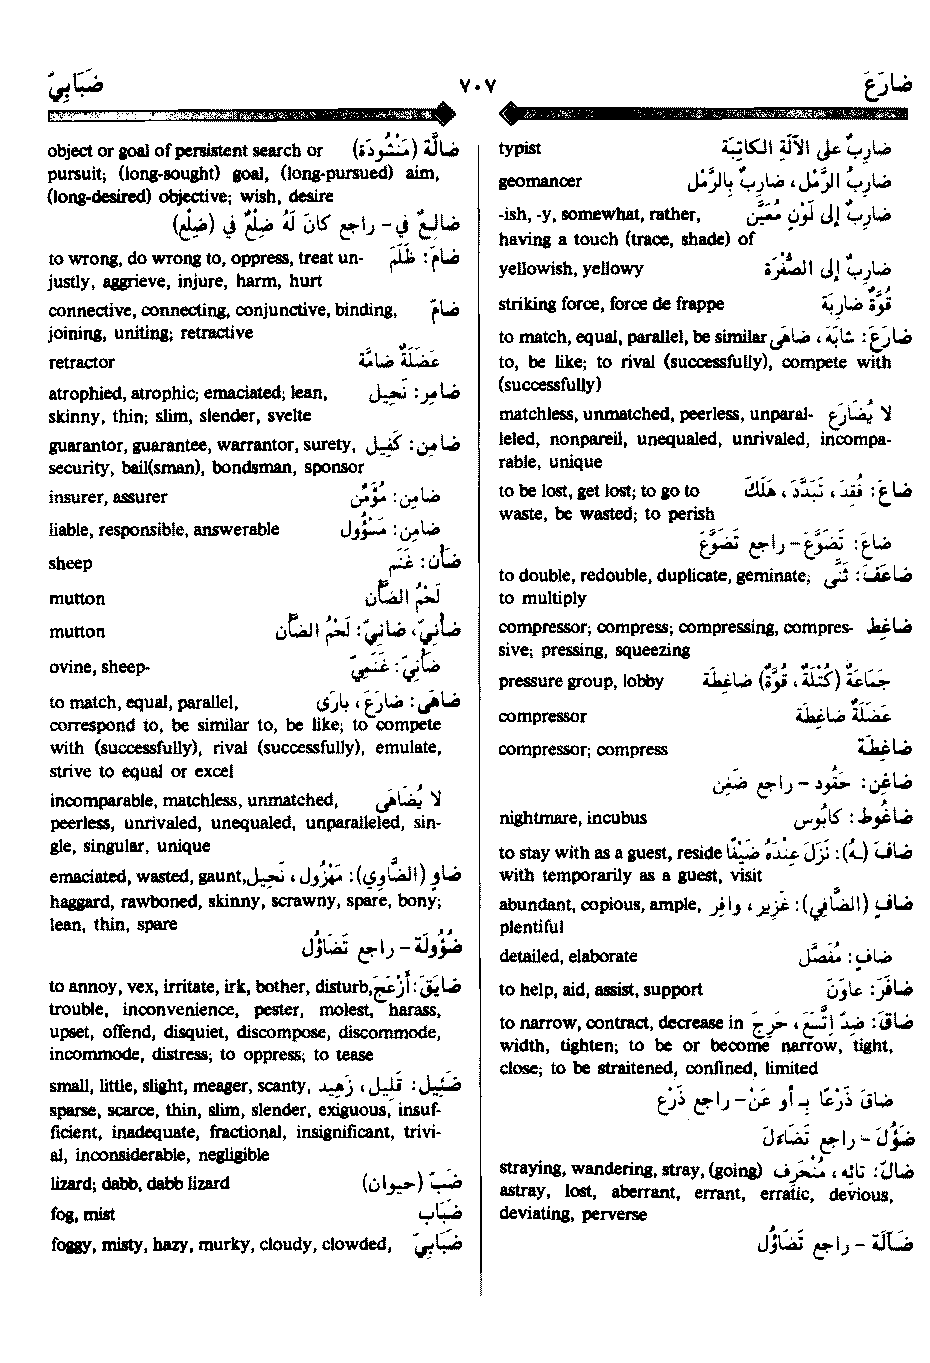 ضارَعَ ٧٠٧ ضَبَابِيّ
ضارِبٌ على الآلَةِ الكاتِبَة typist
ضارِبُ الرَّمْل، ضارِبٌ بِالرَّمْل geomancer
ضارِبٌ إلى لَوْنٍ مُعَيَّن -ish, -y, somewhat, rather,
having a touch (trace, shade) of
ضارِبٌ إلى الصُّفْرَة yellowish, yellowy
قُوَّةٌ ضارِبَة striking force, force de frappe
ضارَعَ: شابَهَ، ضاهَى to match, equal, parallel, be similar
to, be like; to rival (successfully), compete with
(successfully)
لا يُضَارَع matchless, unmatched, peerless, unparal-
leled, nonpareil, unequaled, unrivaled, incompa-
rable, unique
ضاعَ: فُقِدَ، تَبَدَّدَ، هَلَكَ to be lost, get lost; to go to
waste, be wasted; to perish
ضاعَ: تَضَوَّعَ - راجع تَضَوَّعَ
ضاعَفَ: ثَنَّى to double, redouble, duplicate, geminate;
to multiply
ضاغِط compressor; compress; compressing, compres-
sive; pressing, squeezing
جَمَاعَةٌ (كُتْلَةٌ، قُوَّةٌ) ضاغِطَة pressure group, lobby
عَضَلَةٌ ضاغِطَة compressor
ضاغِطَة compressor; compress
ضاغِن: حَقُود - راجع ضَغِن
ضاغُوط: كابُوس nightmare, incubus
ضافَ (ـهُ): نَزَلَ عِنْدَهُ ضَيْفًا to stay with as a guest, reside
with temporarily as a guest, visit
ضافٍ (الضَّافِي): غَزِير، وافِر abundant, copious, ample,
plentiful
ضافٍ: مُفَصَّل detailed, elaborate
ضافَرَ: عاوَنَ to help, aid, assist, support
ضاقَ: ضِدّ اِتَّسَعَ، حَرِجَ to narrow, contract, decrease in
width, tighten; to be or become narrow, tight,
close; to be straitened, confined, limited
ضاقَ ذَرْعًا بِـ أو عَنْ - راجع ذَرْع
ضَؤُلَ - راجع تَضَاءَلَ
ضالّ: تائِه، مُنْحَرِف straying, wandering, stray, (going)
astray, lost, aberrant, errant, erratic, devious,
deviating, perverse
ضَآلَة - راجع تَضَاؤُل
ضالَّة (مَنْشُودَة) object or goal of persistent search or
pursuit; (long-sought) goal, (long-pursued) aim,
(long-desired) objective; wish, desire
ضالِعٌ في - راجع كانَ لَهُ ضِلْعٌ في (ضِلْع)
ضامَ: ظَلَمَ to wrong, do wrong to, oppress, treat un-
justly, aggrieve, injure, harm, hurt
ضامّ connective, connecting, conjunctive, binding,
joining, uniting; retractive
عَضَلَةٌ ضامَّة retractor
ضامِر: نَحِيل atrophied, atrophic; emaciated; lean,
skinny, thin; slim, slender, svelte
ضامِن: كَفِيل guarantor, guarantee, warrantor, surety,
security, bail(sman), bondsman, sponsor
ضامِن: مُؤَمِّن insurer, assurer
ضامِن: مَسْؤُول liable, responsible, answerable
ضَأْن: غَنَم sheep
لَحْمُ الضَّأْن mutton
ضَأْنِيّ، ضانِيّ: لَحْمُ الضَّأْن mutton
ضَأْنِيّ: غَنَمِيّ ovine, sheep-
ضاهَى: ضارَعَ، بارَى to match, equal, parallel,
correspond to, be similar to, be like; to compete
with (successfully), rival (successfully), emulate,
strive to equal or excel
لا يُضَاهَى incomparable, matchless, unmatched,
peerless, unrivaled, unequaled, unparalleled, sin-
gle, singular, unique
ضاوٍ (الضَّاوِي): مَهْزُول، نَحِيل emaciated, wasted, gaunt,
haggard, rawboned, skinny, scrawny, spare, bony;
lean, thin, spare
ضُؤُولَة - راجع تَضَاؤُل
ضايَقَ: أَزْعَجَ to annoy, vex, irritate, irk, bother, disturb,
trouble, inconvenience, pester, molest, harass,
upset, offend, disquiet, discompose, discommode,
incommode, distress; to oppress; to tease
ضَئِيل: قَلِيل، زَهِيد small, little, slight, meager, scanty,
sparse, scarce, thin, slim, slender, exiguous, insuf-
ficient, inadequate, fractional, insignificant, trivi-
al, inconsiderable, negligible
ضَبّ (حيوان) lizard; dabb, dabb lizard
ضَبَاب fog, mist
ضَبَابِيّ foggy, misty, hazy, murky, cloudy, clowded,